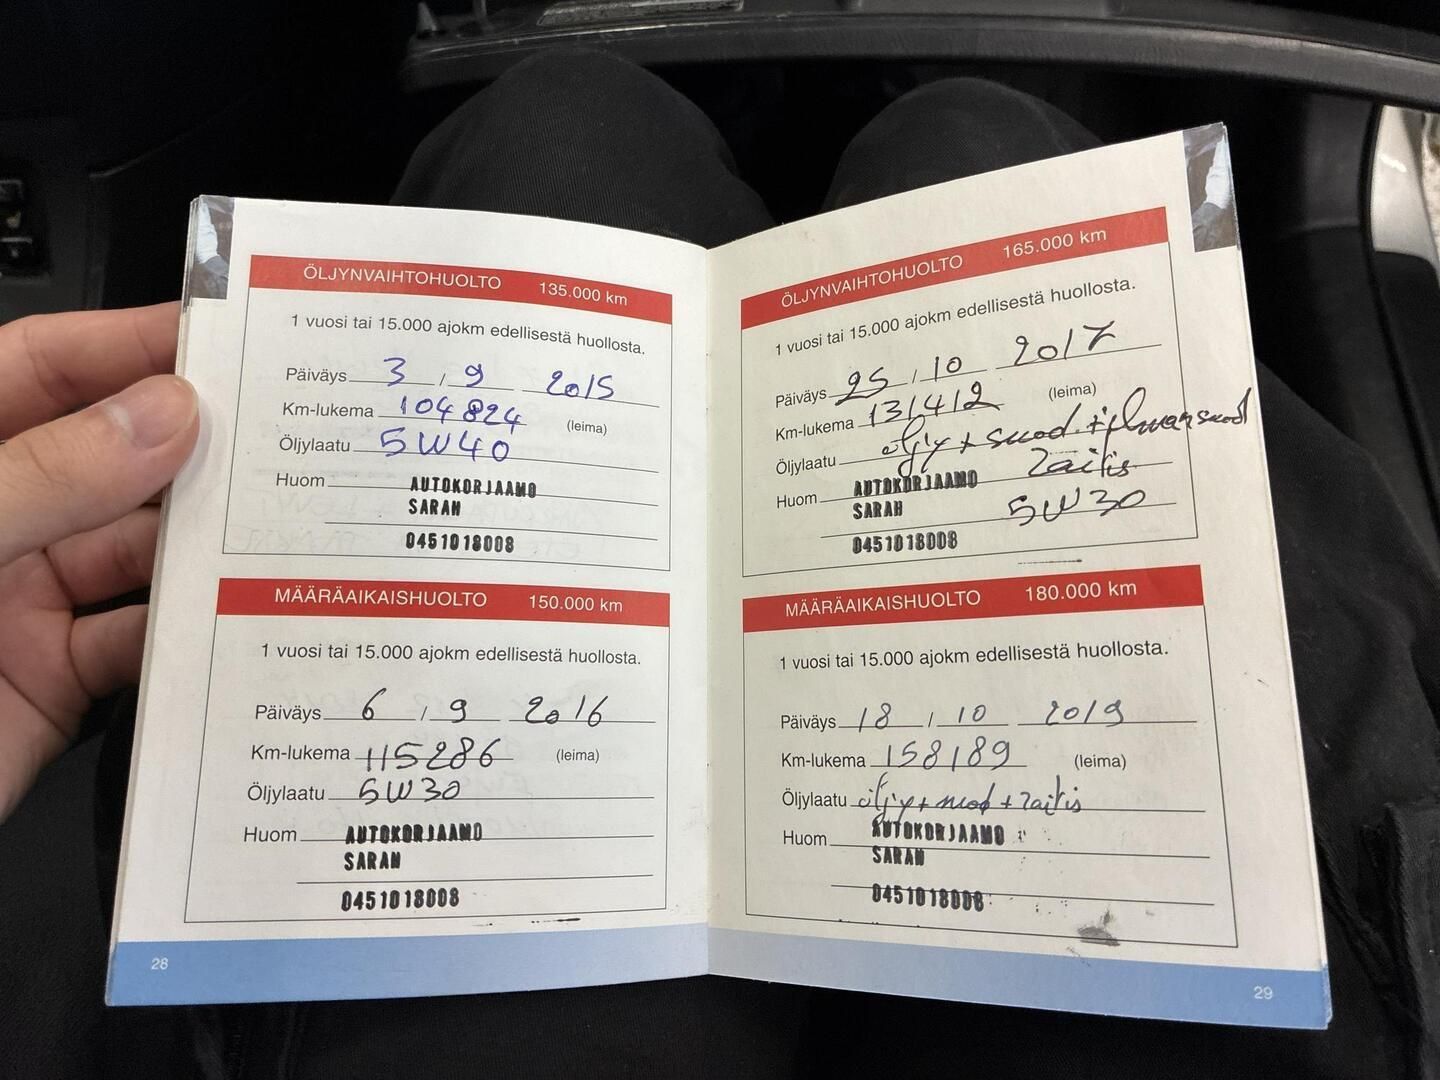 ÖLJYNVAIHTOHUOLTO 135.000 km
1 vuosi tai 15.000 ajokm edellisestä huollosta.
Päiväys 3 / 9 2015
Km-lukema 104824 (leima)
Öljylaatu 5W40
Huom AUTOKORJAAMO
SARAN
0451018008
MÄÄRÄAIKAISHUOLTO 150.000 km
1 vuosi tai 15.000 ajokm edellisestä huollosta.
Päiväys 6 / 9 2016
Km-lukema 115286 (leima)
Öljylaatu 5W30
Huom AUTOKORJAAMO
SARAN
0451018008
28
ÖLJYNVAIHTOHUOLTO 165.000 km
1 vuosi tai 15.000 ajokm edellisestä huollosta.
Päiväys 25 / 10 2017
Km-lukema 131412 (leima)
Öljylaatu öljy + suod. +
Raitis
Huom AUTOKORJAAMO
SARAN 5W30
0451018008
MÄÄRÄAIKAISHUOLTO 180.000 km
1 vuosi tai 15.000 ajokm edellisestä huollosta.
Päiväys 18 / 10 2019
Km-lukema 158189 (leima)
Öljylaatu öljy + suod + Raitis
Huom AUTOKORJAAMO
SARAN
0451018008
29